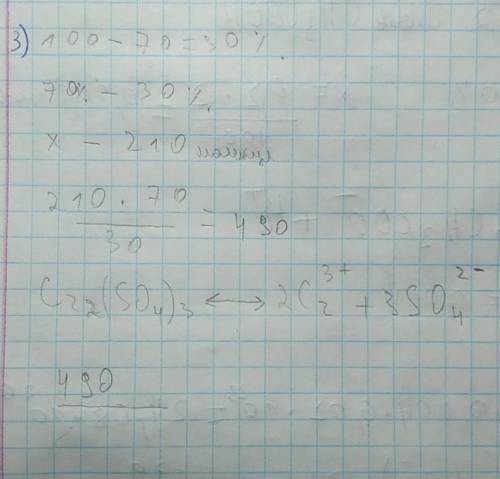 3) 100 - 70 = 30 %.
70% - 30 %.
x - 210 молекул
210 · 70 / 30 = 490
Cr₂(SO₄)₃ ⟷ 2Cr³⁺ + 3SO₄²⁻
490